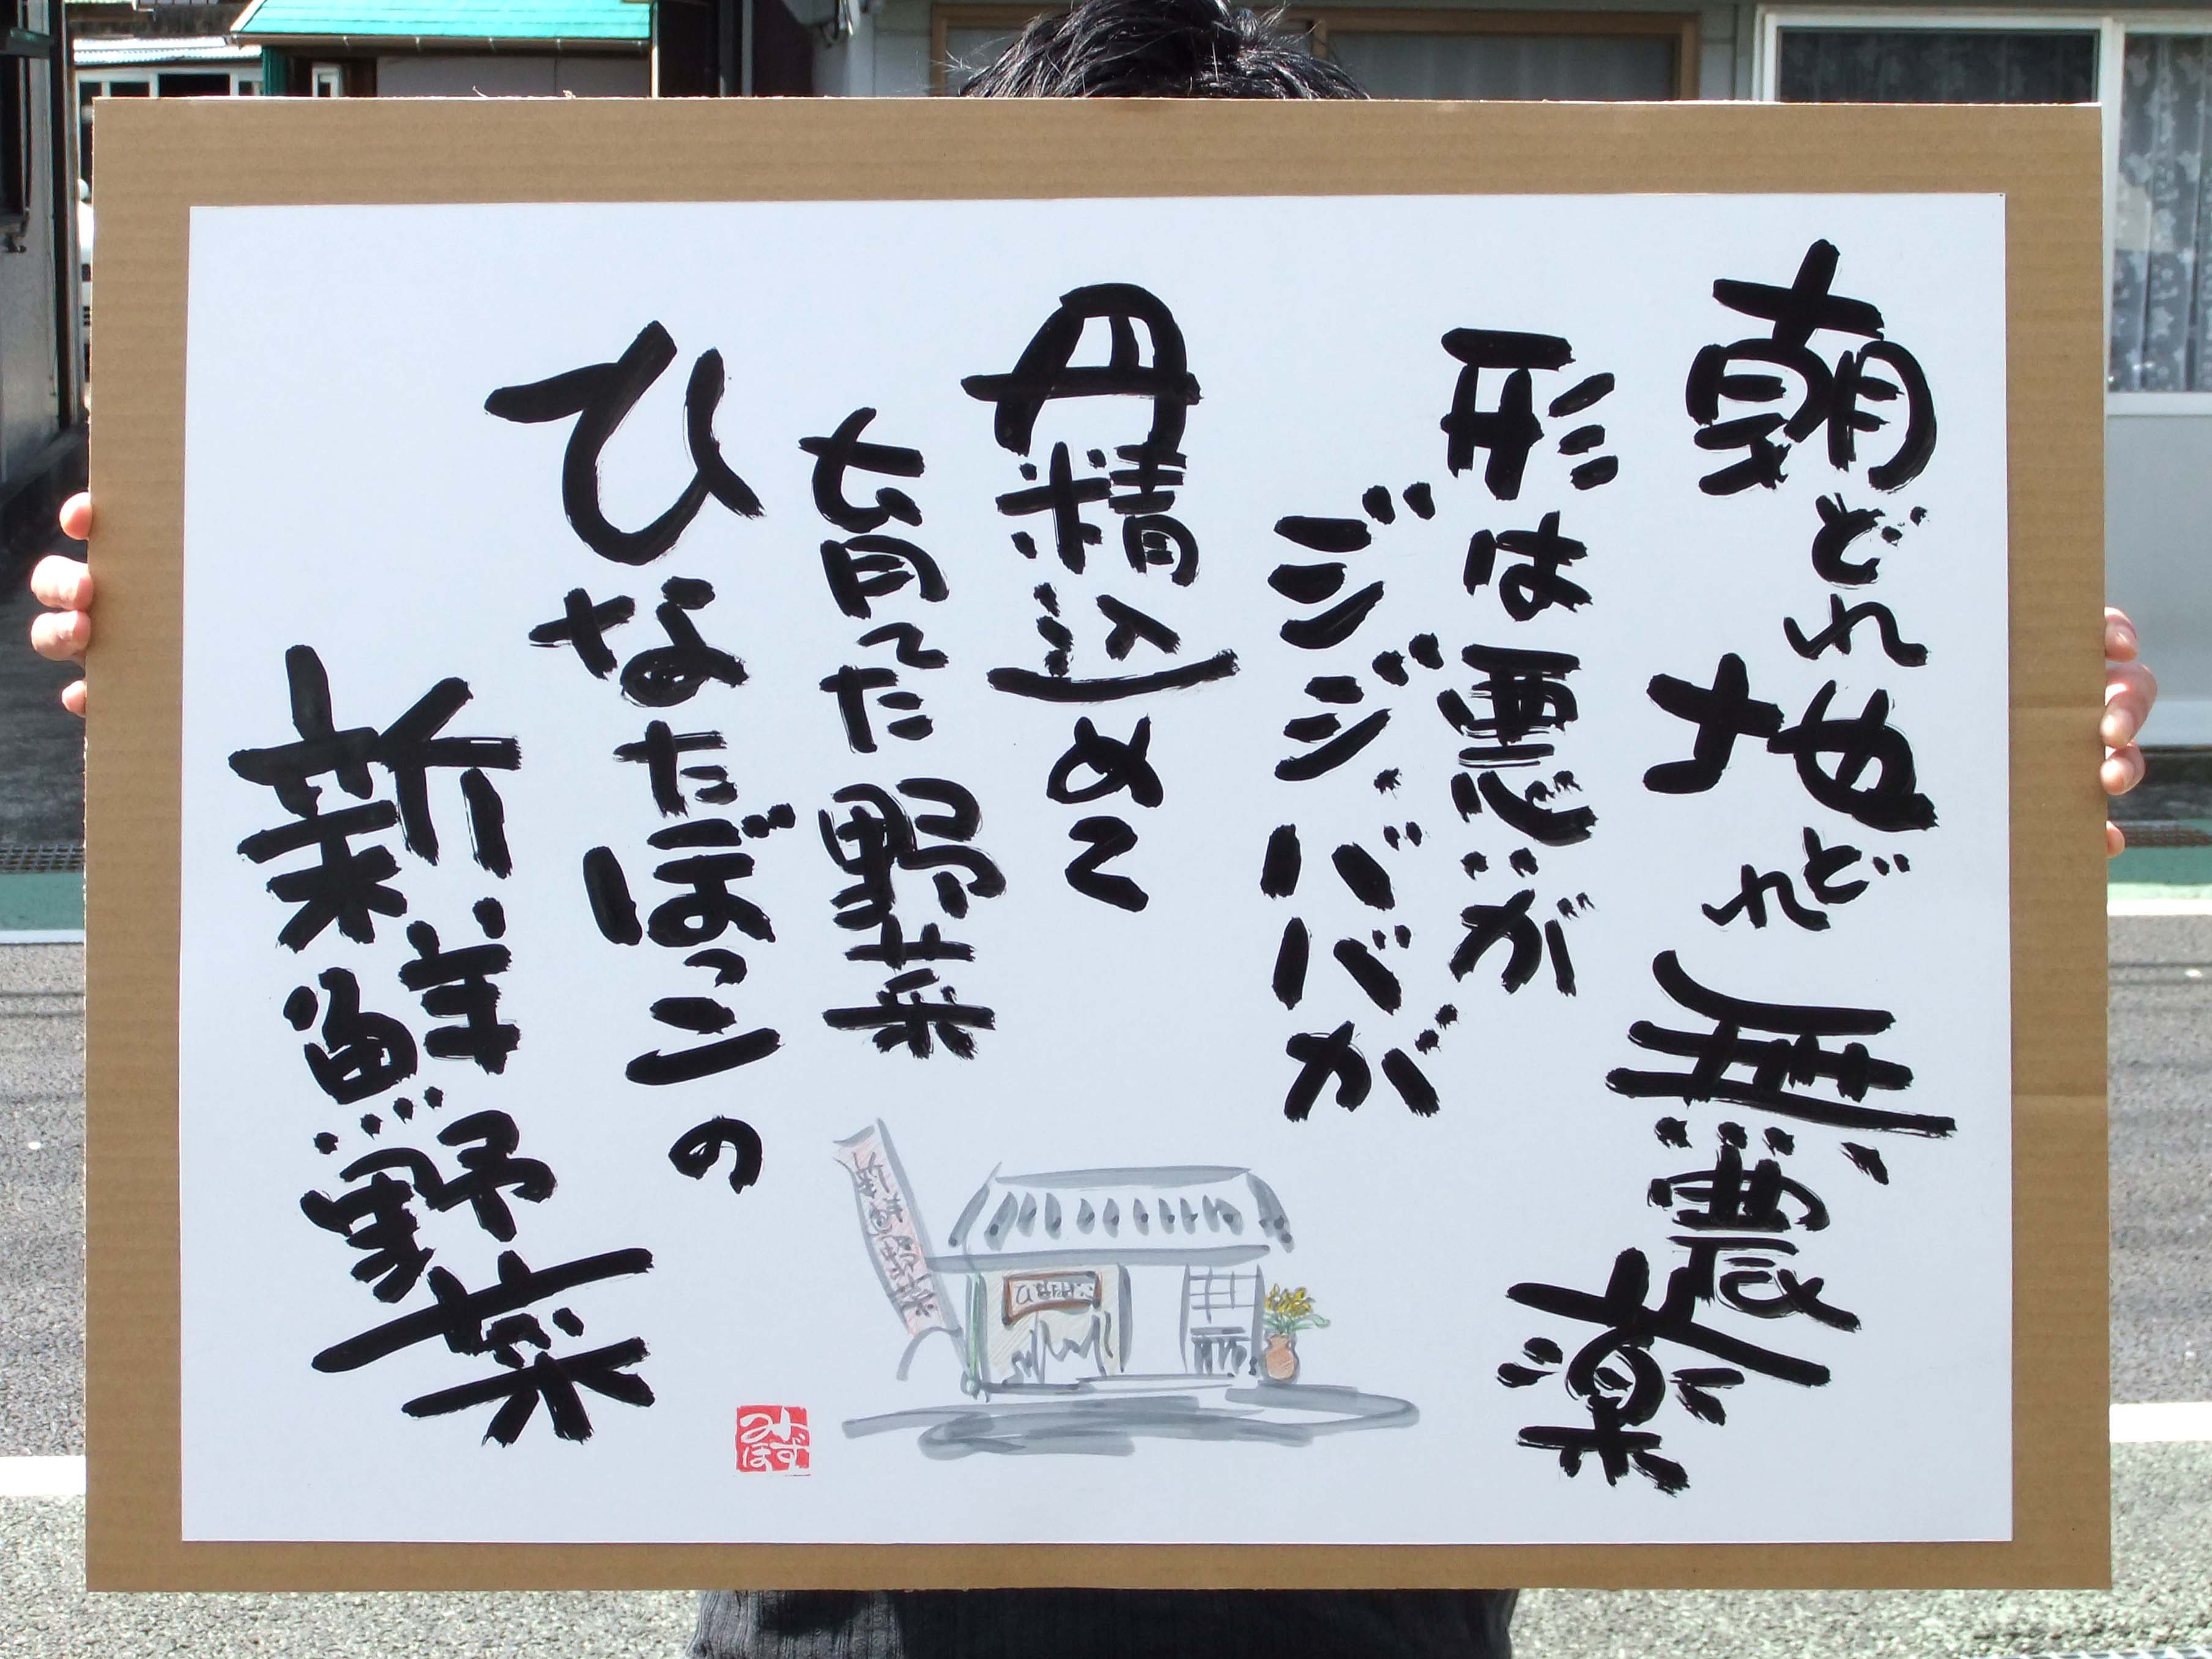 朝どれ地どれ無農薬
形は悪いが
ジジ、ババが
丹精込めて
育てた野菜
ひなたぼっこの
新鮮野菜
新鮮野菜
みずほ